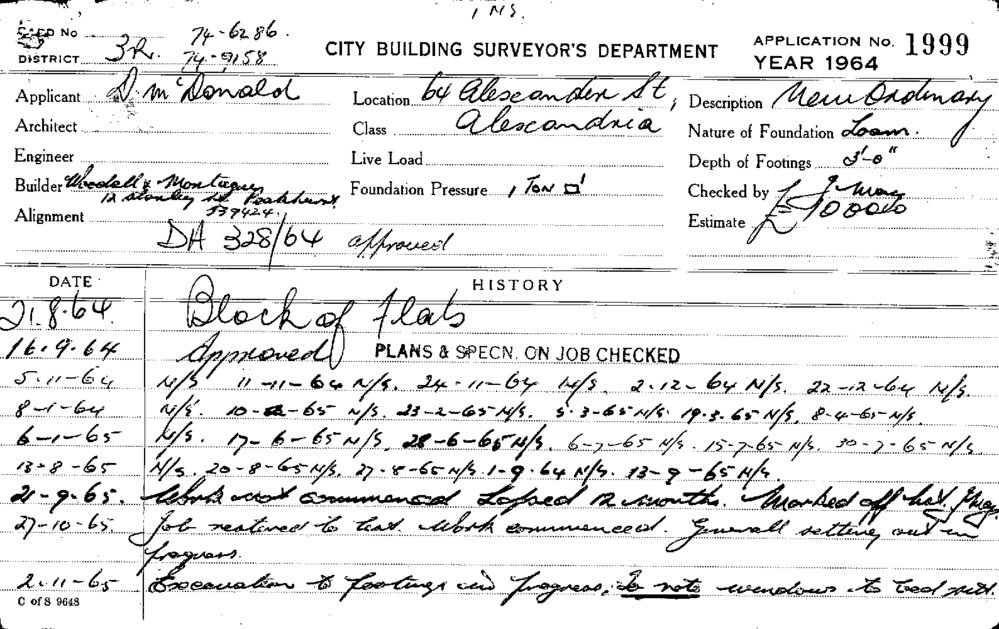 INS.
SEED No 74-6286.
DISTRICT 3R. 74-9158
CITY BUILDING SURVEYOR'S DEPARTMENT
APPLICATION No. 1999
YEAR 1964
Applicant D. McDonald
Location 64 Alexander St,
Description New Ordinary
Architect
Class Alexandria
Nature of Foundation Loam.
Engineer
Live Load
Depth of Footings 3'-0"
Builder Woodall & Montague
12 Stanley St Peakhurst
539424.
Foundation Pressure 1 TON □'
Checked by J May
Alignment
Estimate £10000
DA 328/64 approved
DATE
HISTORY
21.8.64. Block of Flats
16.9.64 Approved PLANS & SPECN. ON JOB CHECKED
5-11-64 N/S 11-11-64 N/S. 24-11-64 N/S. 2-12-64 N/S. 22-12-64 N/S.
8-1-64 N/S. 10-2-65 N/S. 23-2-65 N/S. 5-3-65 N/S. 19.3.65 N/S. 8-4-65 N/S.
6-1-65 N/S. 17-6-65 N/S. 28-6-65 N/S. 6-7-65 N/S. 15-7-65 N/S. 30-7-65 N/S.
13-8-65 N/S. 20-8-65 N/S. 27-8-65 N/S. 1-9.64 N/S. 13-9-65 N/S.
21-9-65. Work not commenced Lapsed 12 months. Marked off list. J May
27-10-65. Job restored to list. Work commenced. Generall setting out in
progress.
2-11-65 Excavation to footings in progress; To note windows to bed sitt.
C of S 9648